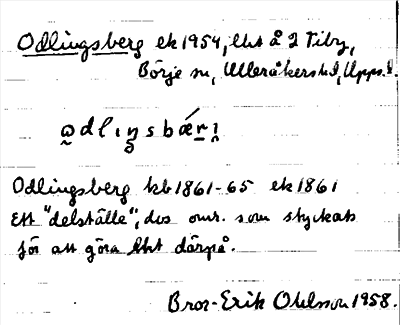 Odlingsberg ek 1954, lht å 2 Tiby,
Börje sn, Ulleråkers hd, Upps. l.
ω̰dlıŋsbǽr̥ı̣
Odlingsberg kb 1861-65 ek 1861
Ett "delställe", dvs omr. som styckats
för att göra lht därpå.
Bror-Erik Ohlsson 1958.